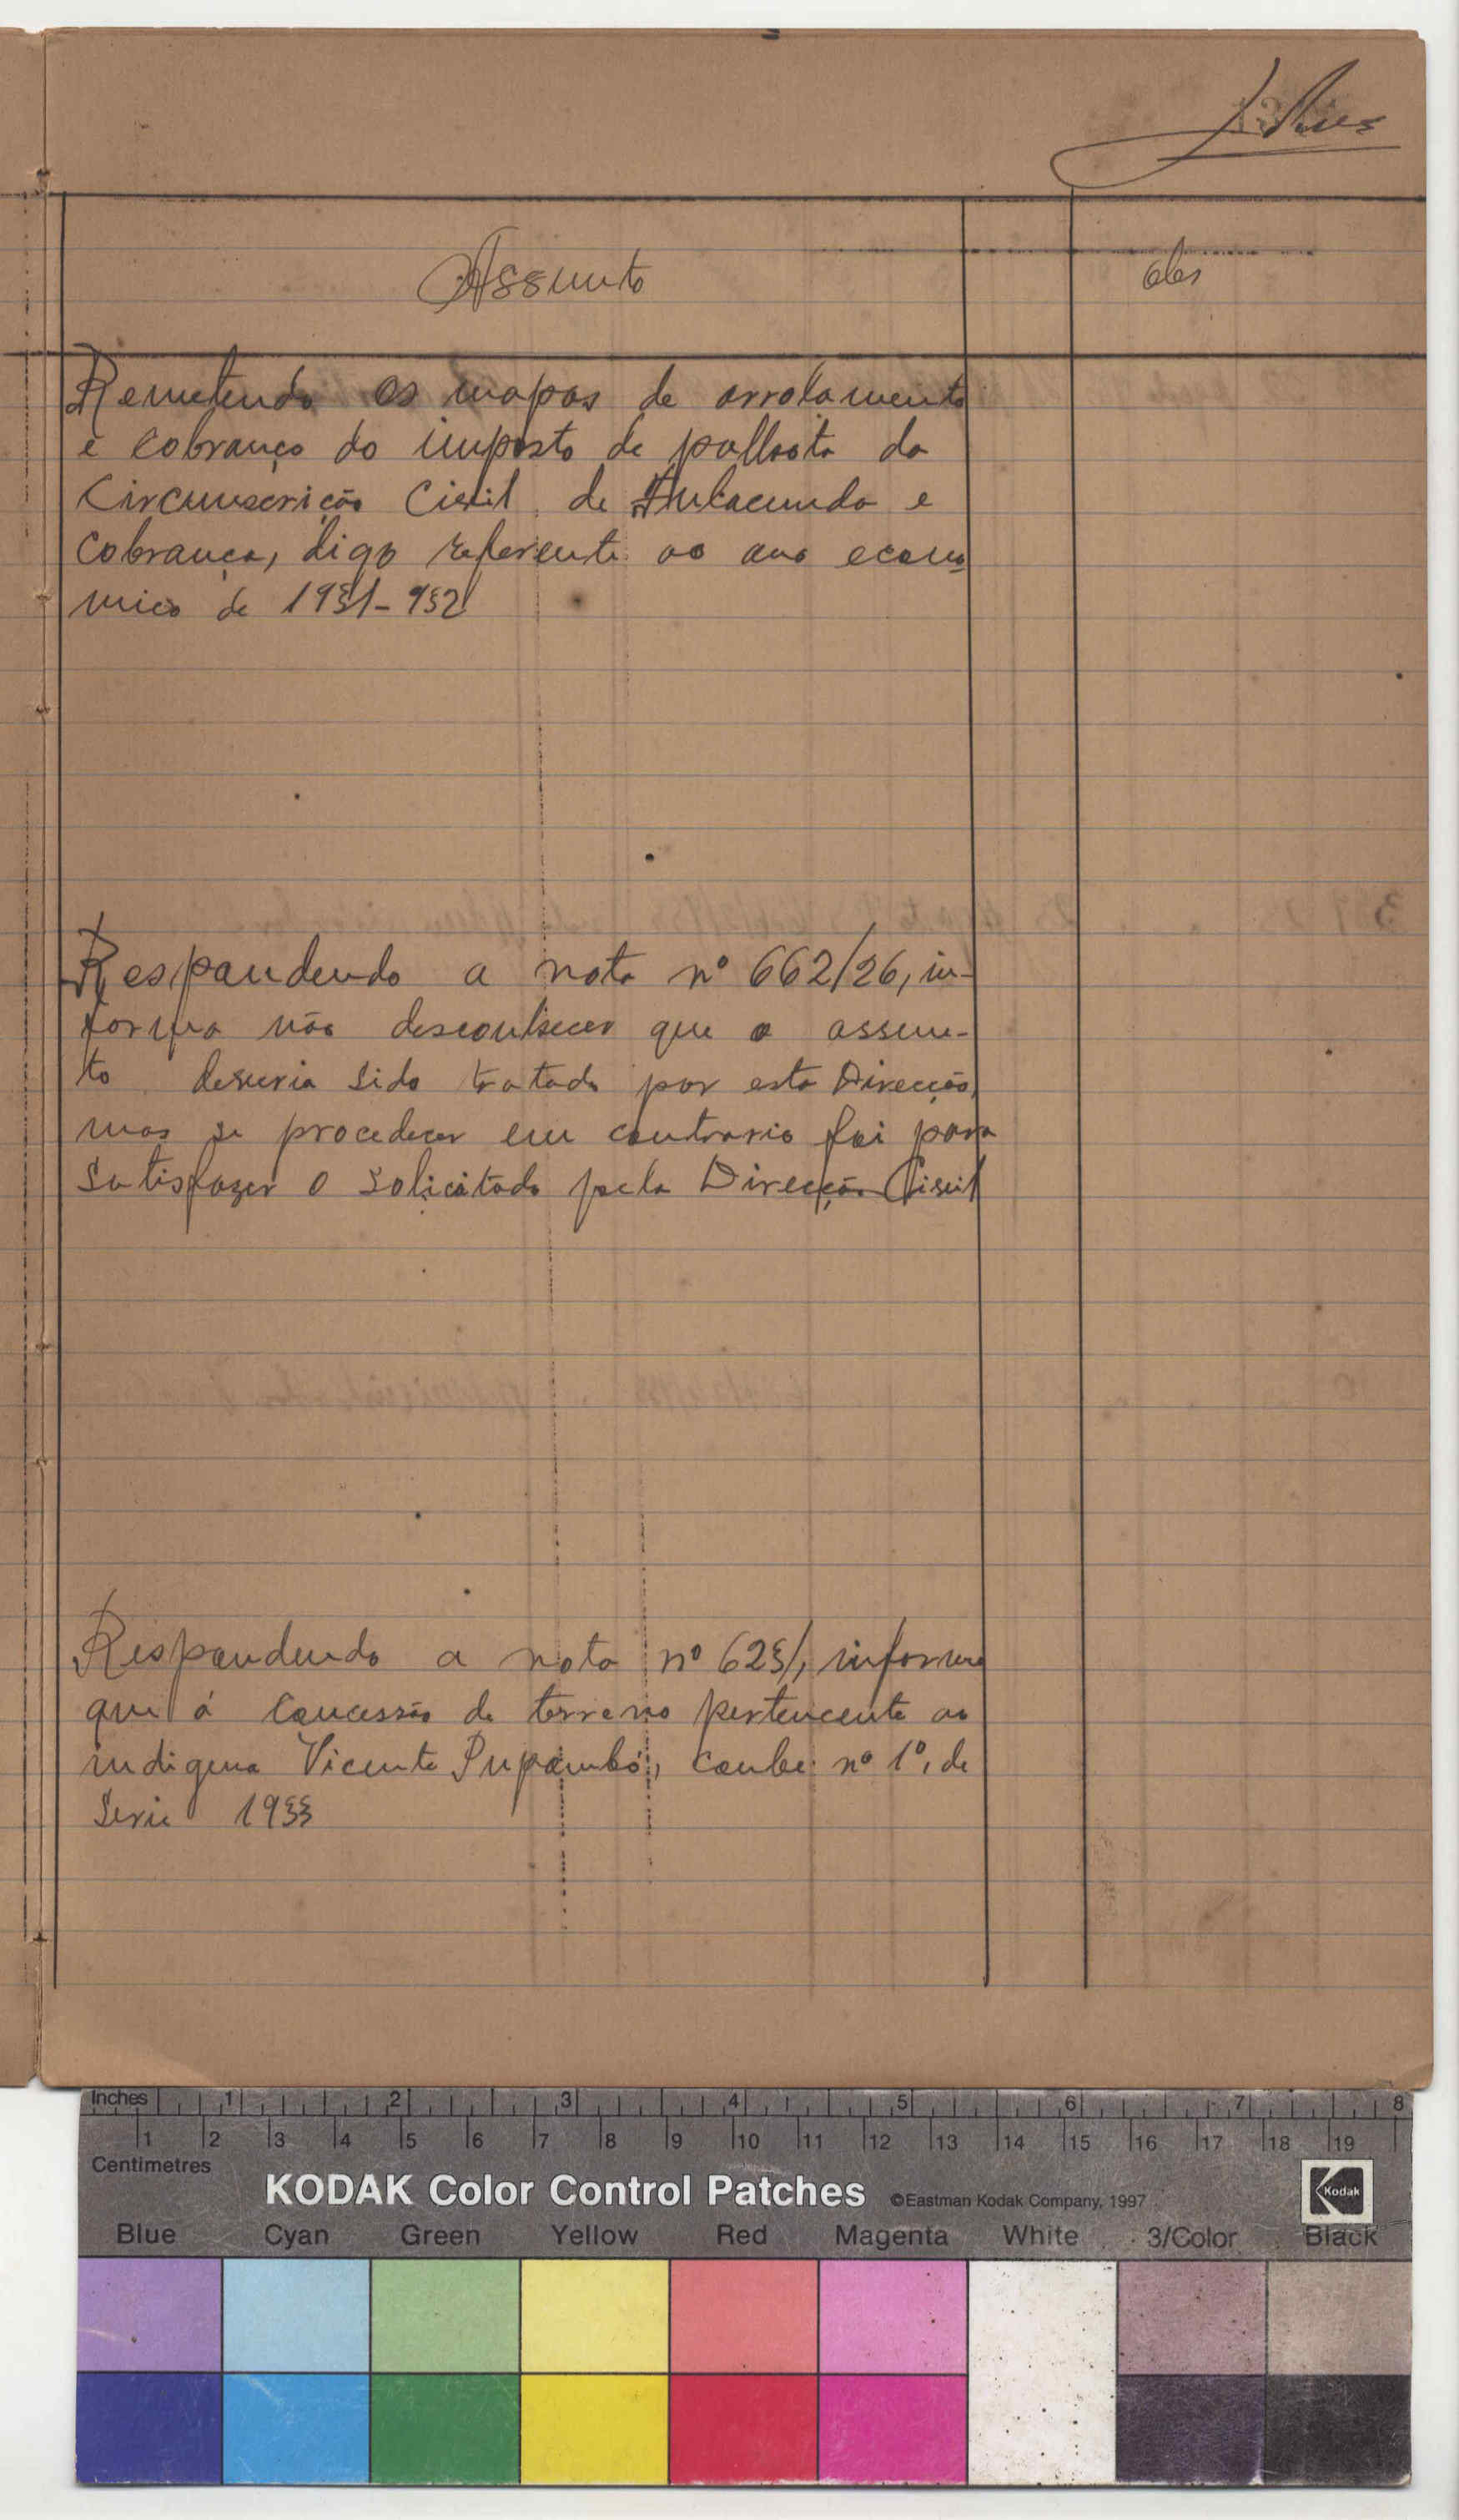 Assunto
obs
Remetendo os mapas de arrolamento
e cobrança do imposto de palhota da
Circunscrição Civil de Fulacunda e
cobrança, digo referente ao ano econo
mico de 1931-932
Respondendo a nota nº 662/26, in-
forma não desconhecer que o assun-
to deveria sido tratado por esta Direcção,
mas se proceder em contrario foi para
satisfazer o solicitado pela Direcção Civil
Respondendo a nota nº 623/, informa
que á concessão de terreno pertencente ao
indigena Vicente Pupambó, coube nº 1º, de
serie 1933
Inches 1 2 3 4 5 6 7 8
1 2 3 4 5 6 7 8 9 10 11 12 13 14 15 16 17 18 19
Centimetres
KODAK Color Control Patches ©Eastman Kodak Company, 1997 Kodak
Blue Cyan Green Yellow Red Magenta White 3/Color Black